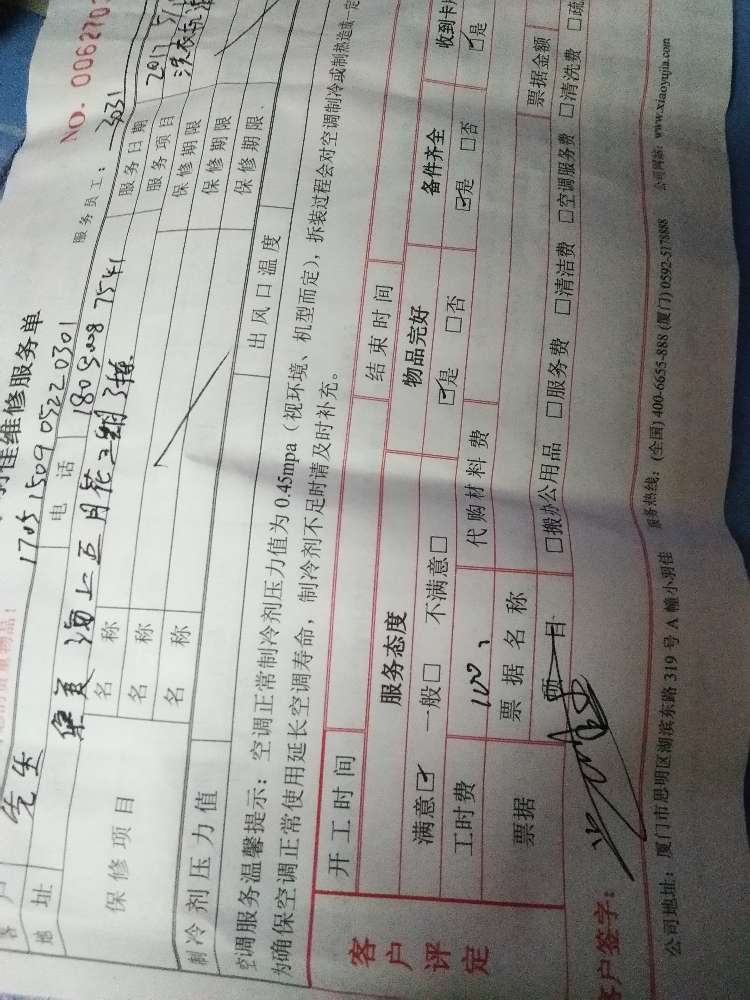 NO. 0062703
羽佳维修服务单
服务员工: 3031
客户 先生 电话 180 5008 7541 服务日期 2017
地址 海上五月花二期3楼 服务项目 洗衣机
保修项目 名称 保修期限
名称 保修期限
名称 保修期限
制冷剂压力值 出风口温度
空调服务温馨提示：空调正常制冷剂压力值为 0.45mpa（视环境、机型而定），拆装过程会对空调制冷或制热造成一定
为确保空调正常使用延长空调寿命，制冷剂不足时请及时补充。
客户评定
开工时间 结束时间
服务态度 物品完好 备件齐全 收到卡
满意☑ 一般□ 不满意□ ☑是 □否 ☑是 □否 ☑是
工时费 100 代购材料费 票据金额
票据 票据名称
项目 □搬办公用品 □服务费 □清洁费 □空调服务费 □清洗费 □疏
客户签字：
公司地址：厦门市思明区湖滨东路 319 号 A 幢小羽佳 服务热线：(全国) 400-6655-888 (厦门) 0592-5178888 公司网站：www.xiaoyujia.com